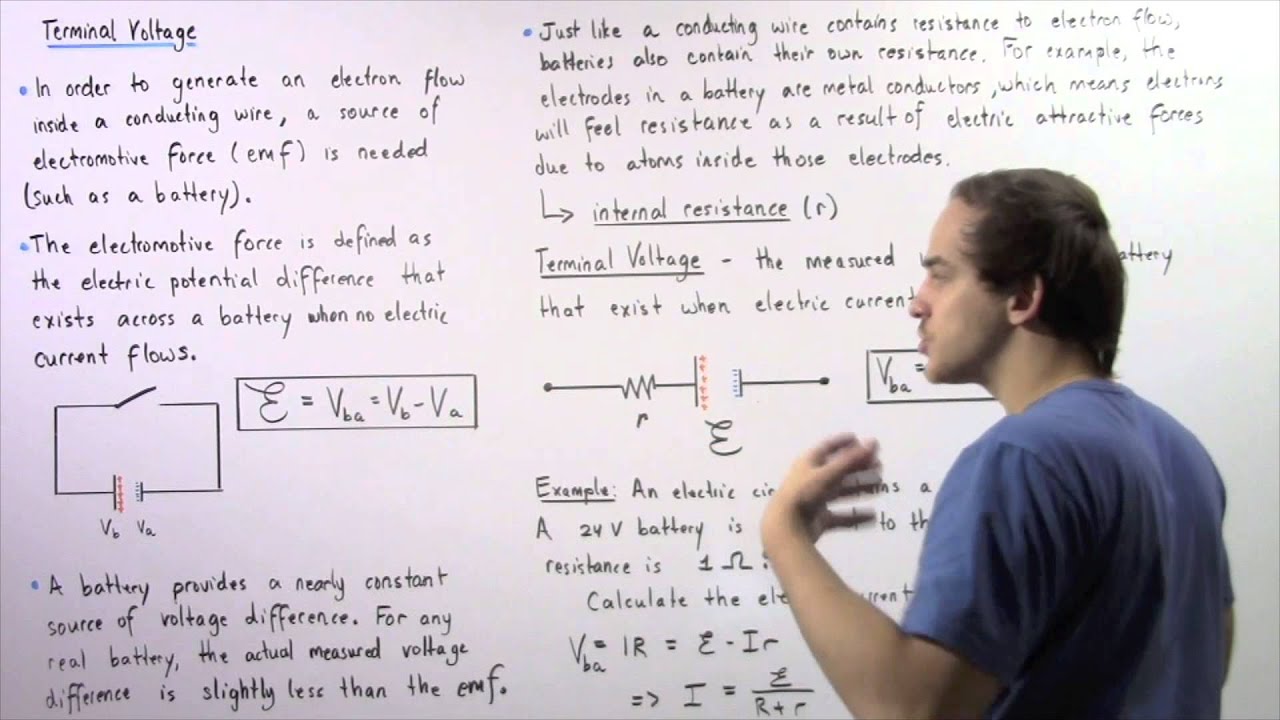 Terminal Voltage
• In order to generate an electron flow
inside a conducting wire, a source of
electromotive force (emf) is needed
(such as a battery).
• The electromotive force is defined as
the electric potential difference that
exists across a battery when no electric
current flows.
ℰ = Vba = Vb - Va
Vb Va
• A battery provides a nearly constant
source of voltage difference. For any
real battery, the actual measured voltage
difference is slightly less than the emf.
• Just like a conducting wire contains resistance to electron flow,
batteries also contain their own resistance. For example, the
electrodes in a battery are metal conductors, which means electrons
will feel resistance as a result of electric attractive forces
due to atoms inside those electrodes.
↳ internal resistance (r)
Terminal Voltage - the measured
that exist when electric current
r
ℰ
Vba =
Example: An electric
A 24 V battery is to
resistance is 1 Ω
Calculate the
Vba = IR = ℰ - Ir
=> I = ℰ / R + r